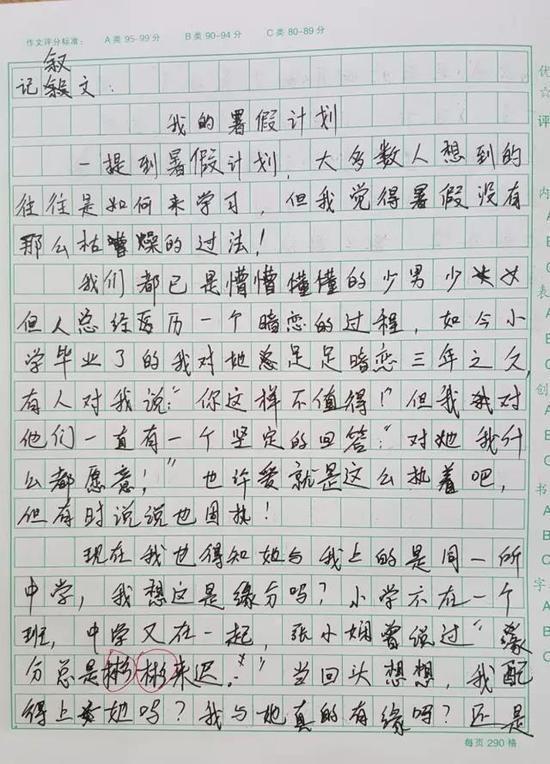 作文评分标准： A类 95-99分 B类 90-94分 C类 80-89分
记叙文：
我的暑假计划
一提到暑假计划，大多数人想到的
往往是如何来学习，但我觉得暑假没有
那么枯燥的过法！
我们都已是懵懵懂懂的少男少女
但人总经历一个暗恋的过程，如今小
学毕业了的我对她足足暗恋三年之久，
有人对我说：“你这样不值得！”但我对
他们一直有一个坚定的回答：“对她我什
么都愿意！”也许爱就是这么执着吧，
但有时说说也固执！
现在我也得知她与我上的是同一所
中学，我想这是缘分吗？小学不在一个
班，中学又在一起，张小娴曾说过“缘
分总是彬彬来迟。”当回头想想，我配
得上她吗？我与她真的有缘吗？还是
每页290格
优
☆
评
内
A
B
C
表
A
B
C
创
A
B
C
书
A
B
C
字
A
B
C